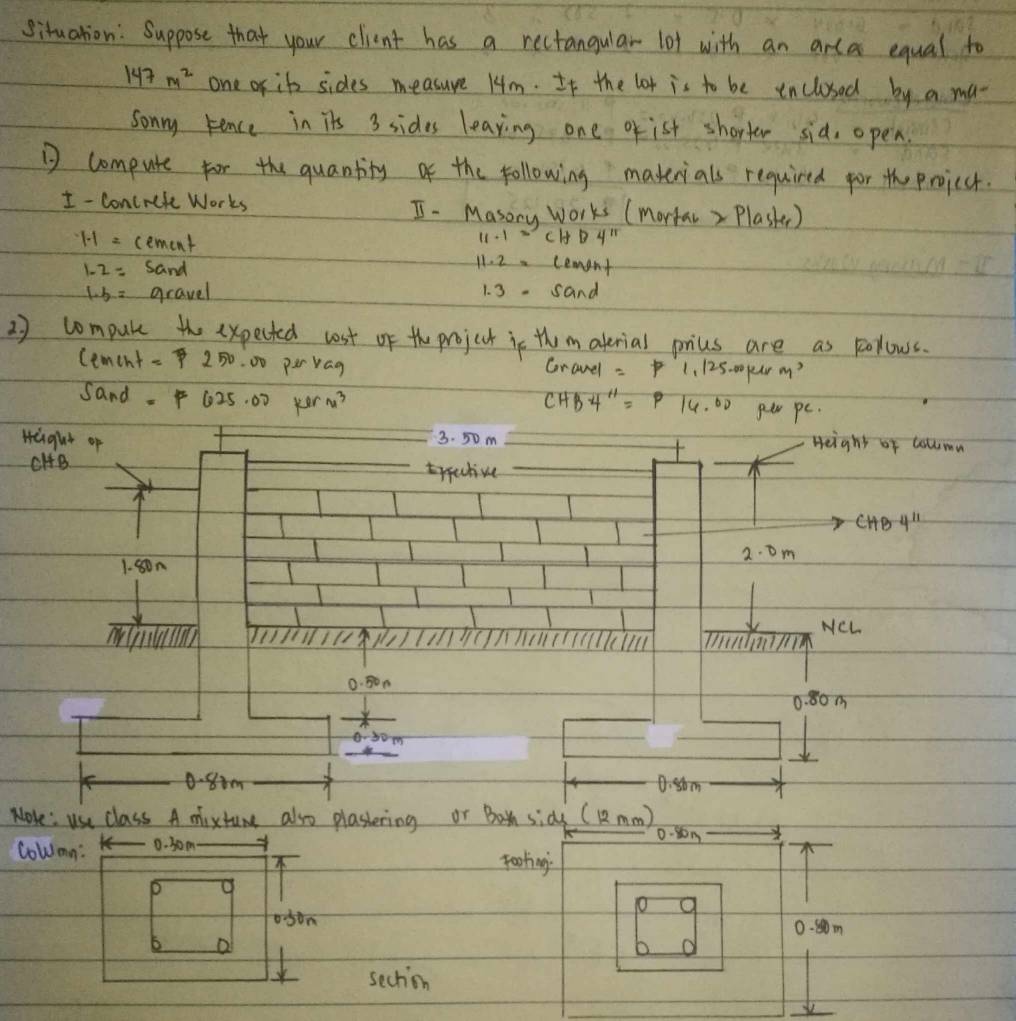 Situation: Suppose that your client has a rectangular lot with an area equal to
147 m² one of its sides measure 14m. If the lot is to be enclosed by a ma-
sonry fence in its 3 sides leaving one of ist shorter side open.
1.) Compute for the quantity of the following materials required for the project.
I - Concrete Works
II - Masory Works (Mortar > Plaster)
1.1 = cement
11.1 = CHB 4"
1.2 = sand
11.2 = cement
1.3 = gravel
1.3 - sand
2.) Compute the expected cost of the project if the material prices are as follows.
Cement = ₱ 250.00 per bag
Gravel = ₱ 1,125.00 per m³
Sand = ₱ 625.00 per m³
CHB 4" = ₱ 14.00 per pc.
Height of
CHB
3.50 m
Effective
Height of column
CHB 4"
1.80m
2.0m
NGL
0.50m
0.80m
0.30m
0.80m
0.80m
Note: Use Class A mixture also plastering or Both side (12 mm)
Column:
0.30m
Footing:
0.80m
0.30m
0.80m
section